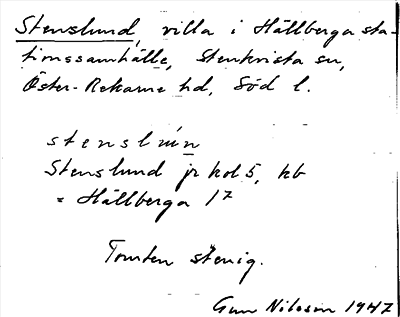 Stenslund, villa i Hällberga sta-
tionssamhälle, Stenkvista sn,
Öster-Rekarne hd, Söd l.
stenslun
Stenslund jr kol 5, kb
= Hällberga 1⁷
Tomten stenig.
Gun Nilsson 1947